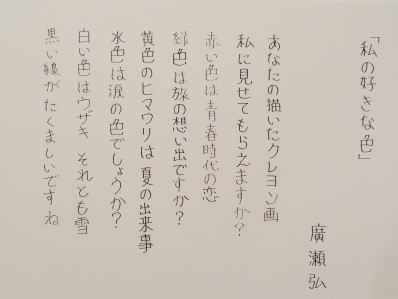 「私の好きな色」
廣瀬弘
あなたの描いたクレヨン画
私に見せてもらえますか?
赤い色は青春時代の恋
緑色は旅の想い出ですか?
黄色のヒマワリは夏の出来事
水色は涙の色でしょうか?
白い色はウザギ それとも雪
黒い線がたくましいですね